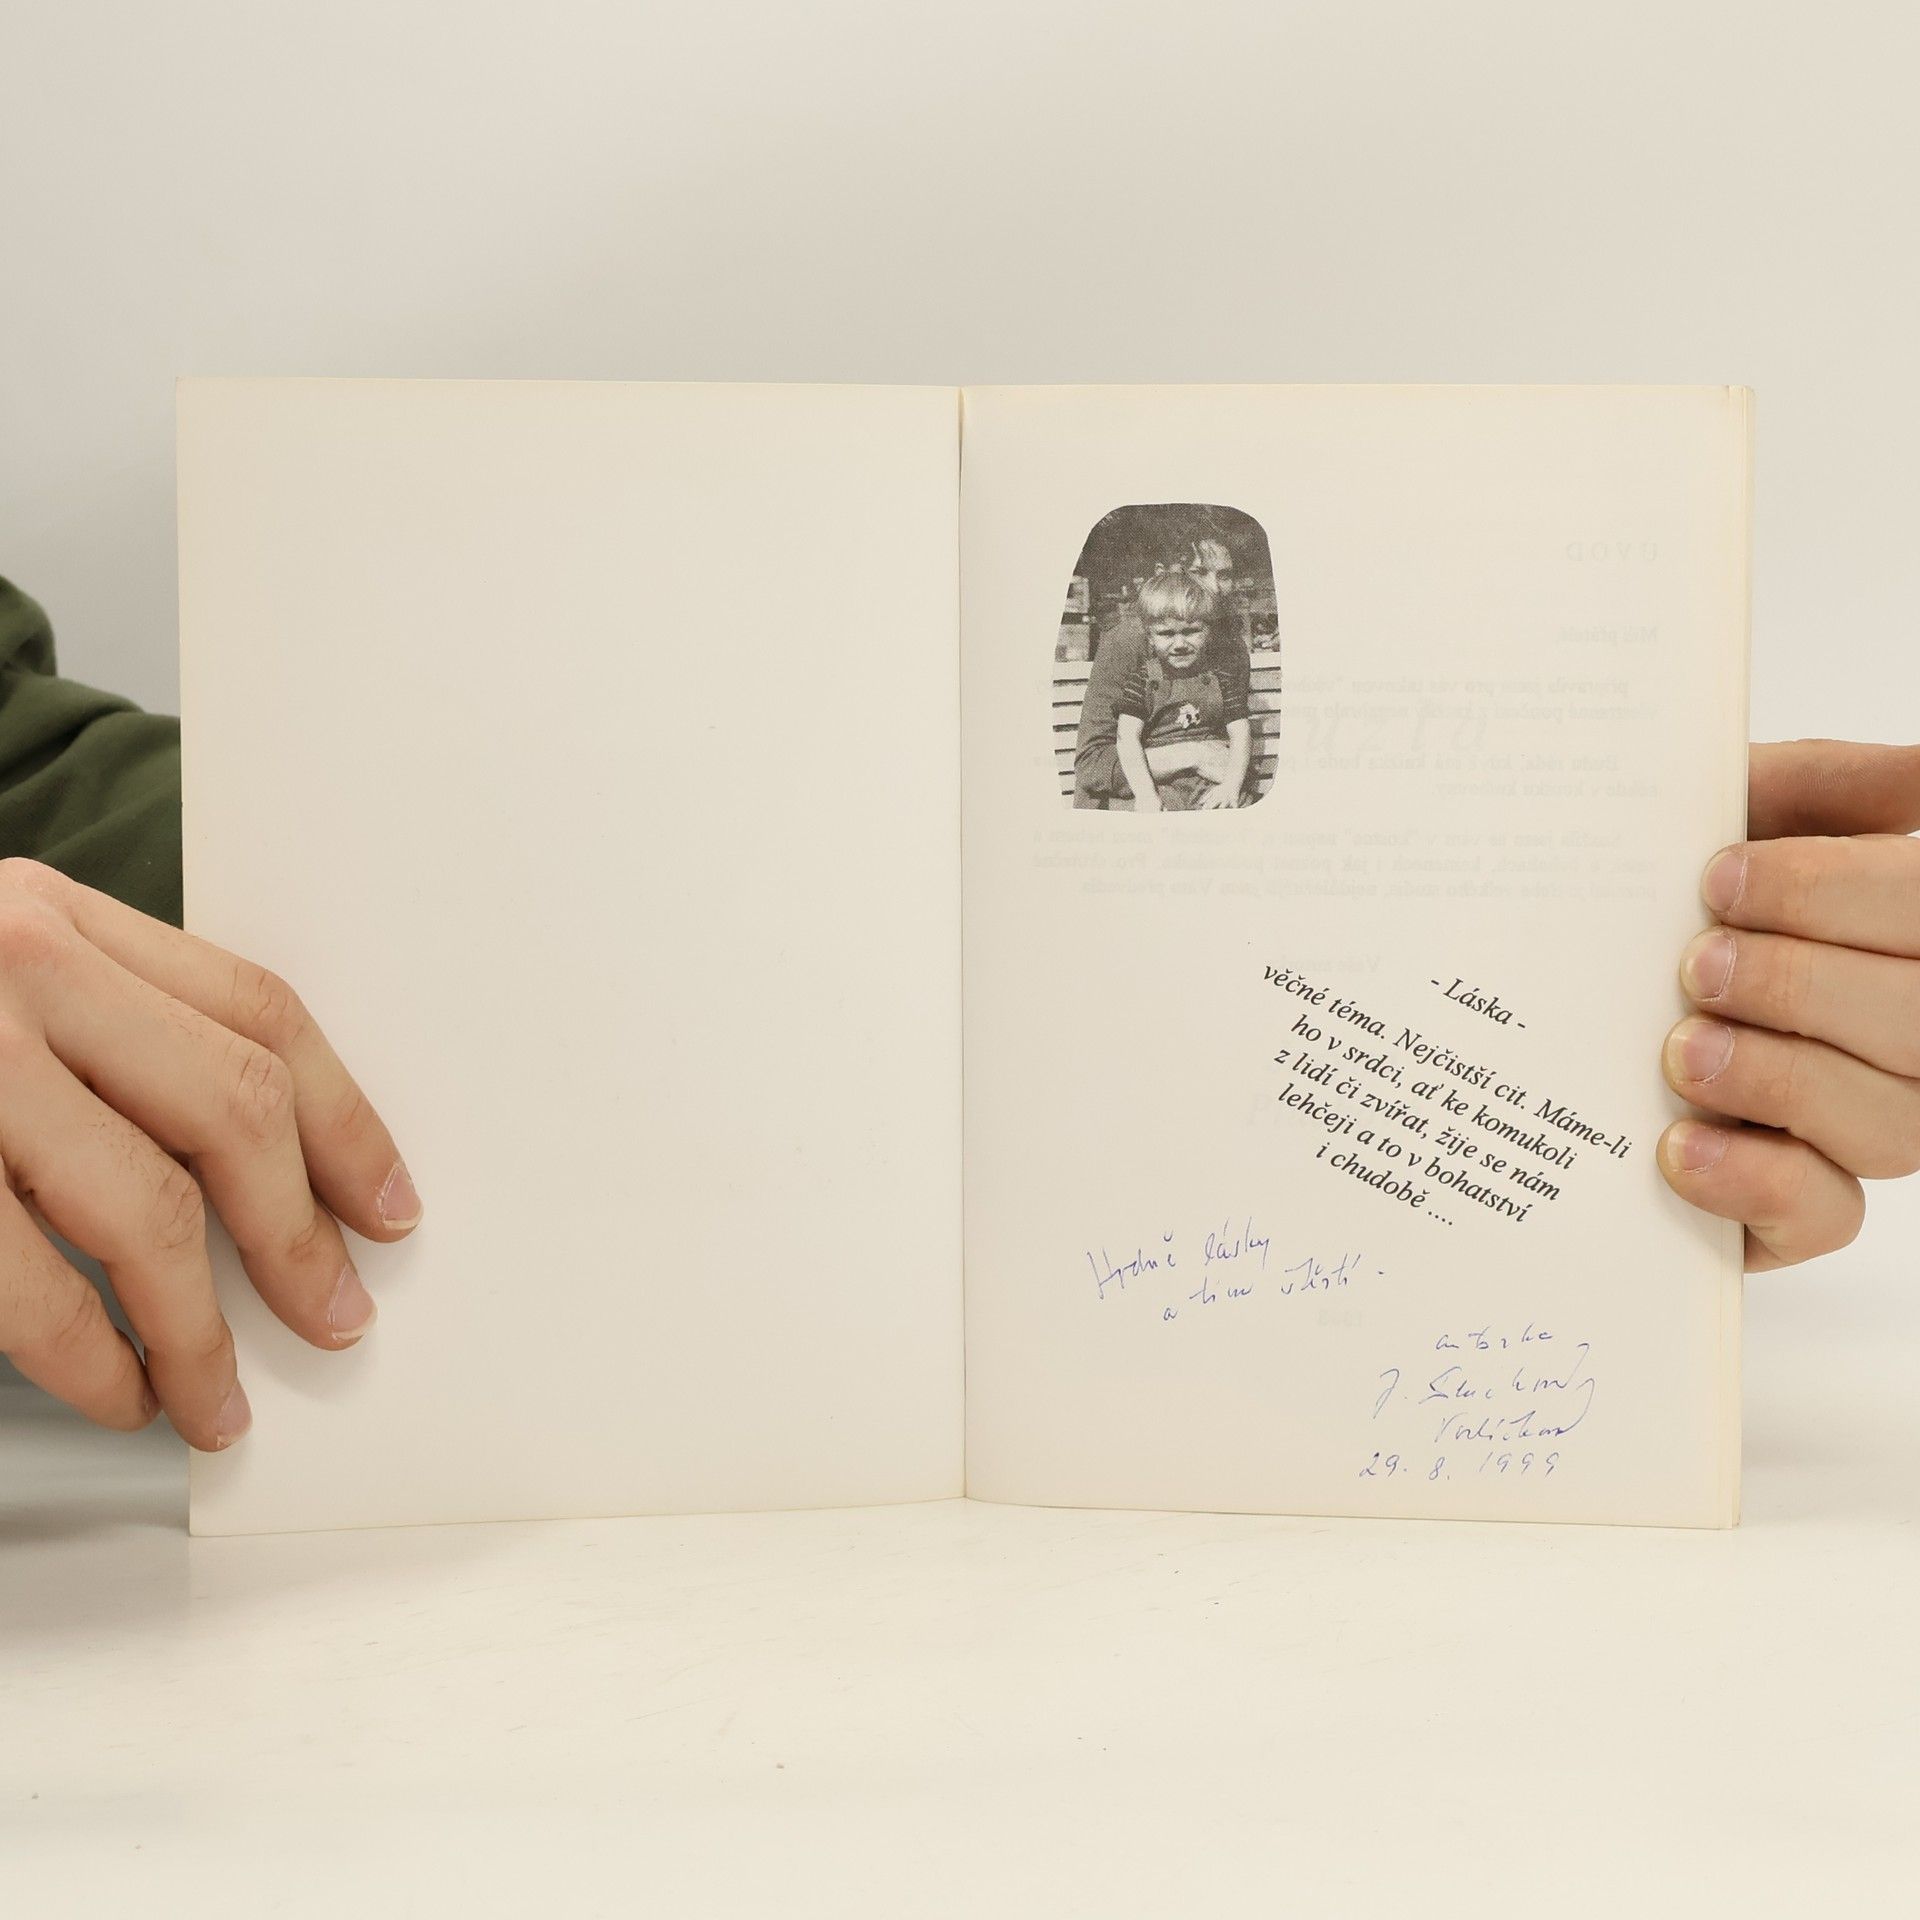 - Láska -
věčné téma. Nejčistší cit. Máme-li
ho v srdci, ať ke komukoli
z lidí či zvířat, žije se nám
lehčeji a to v bohatství
i chudobě ....
Hodně lásky
a tím štěstí -
autorka
J.
29. 8. 1999